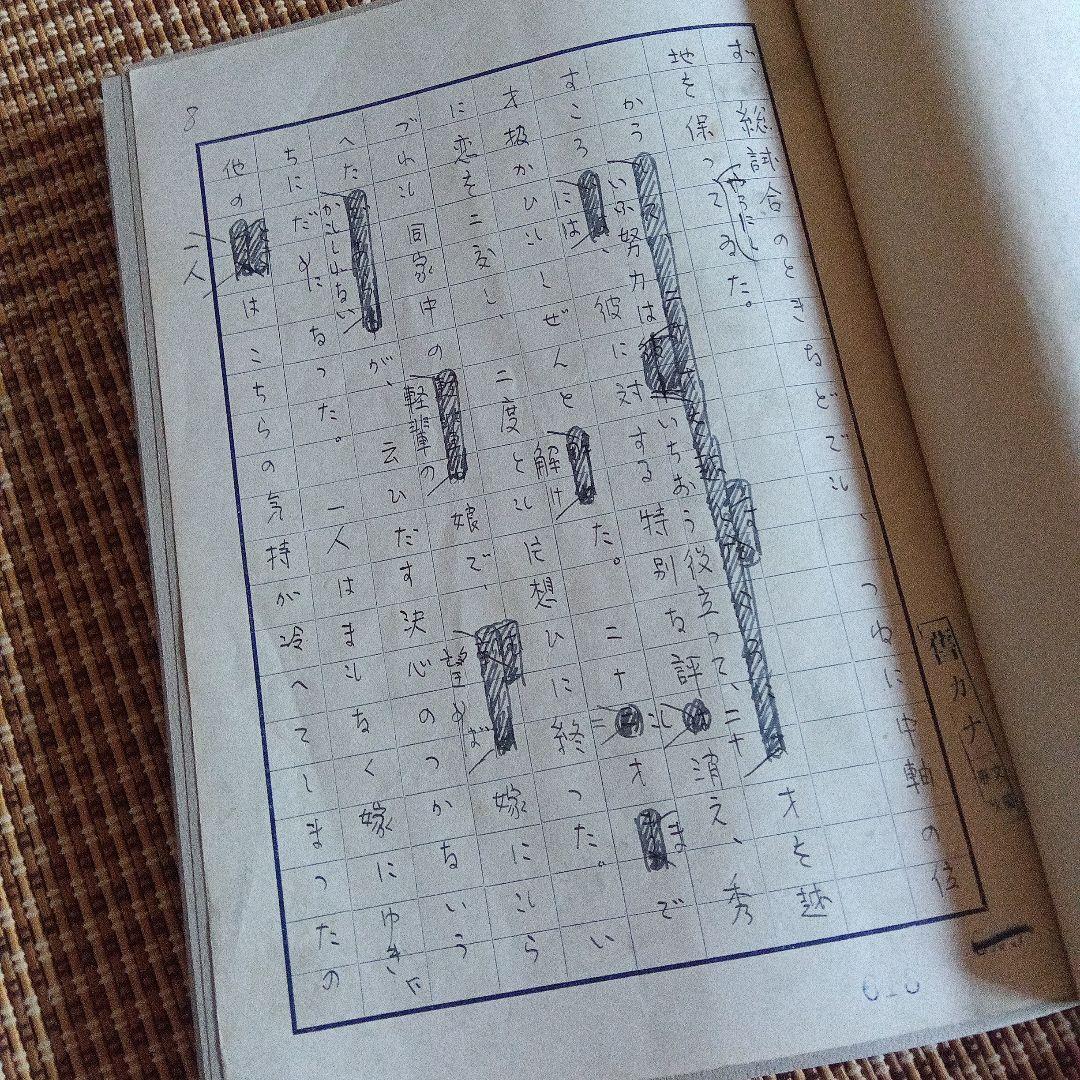 旧カナ
ず、総試合のときなどでも、つねに中軸の位
地を保ってゐた。
やうにし
かういふ努力はいちおう役立って、二十才を越
すころには、彼に対する特別な評も消え、秀
才扱かひもしぜんと解けた。二十二才まで
に恋を二度し、二度とも片想ひに終った。い
づれも同家中の軽輩の娘で、望めば嫁にもら
へたかもしれないが、云ひだす決心のつかないう
ちにだめになった。一人はまもなく嫁にゆき、
他の二人はこちらの気持が冷へてしまったの
8